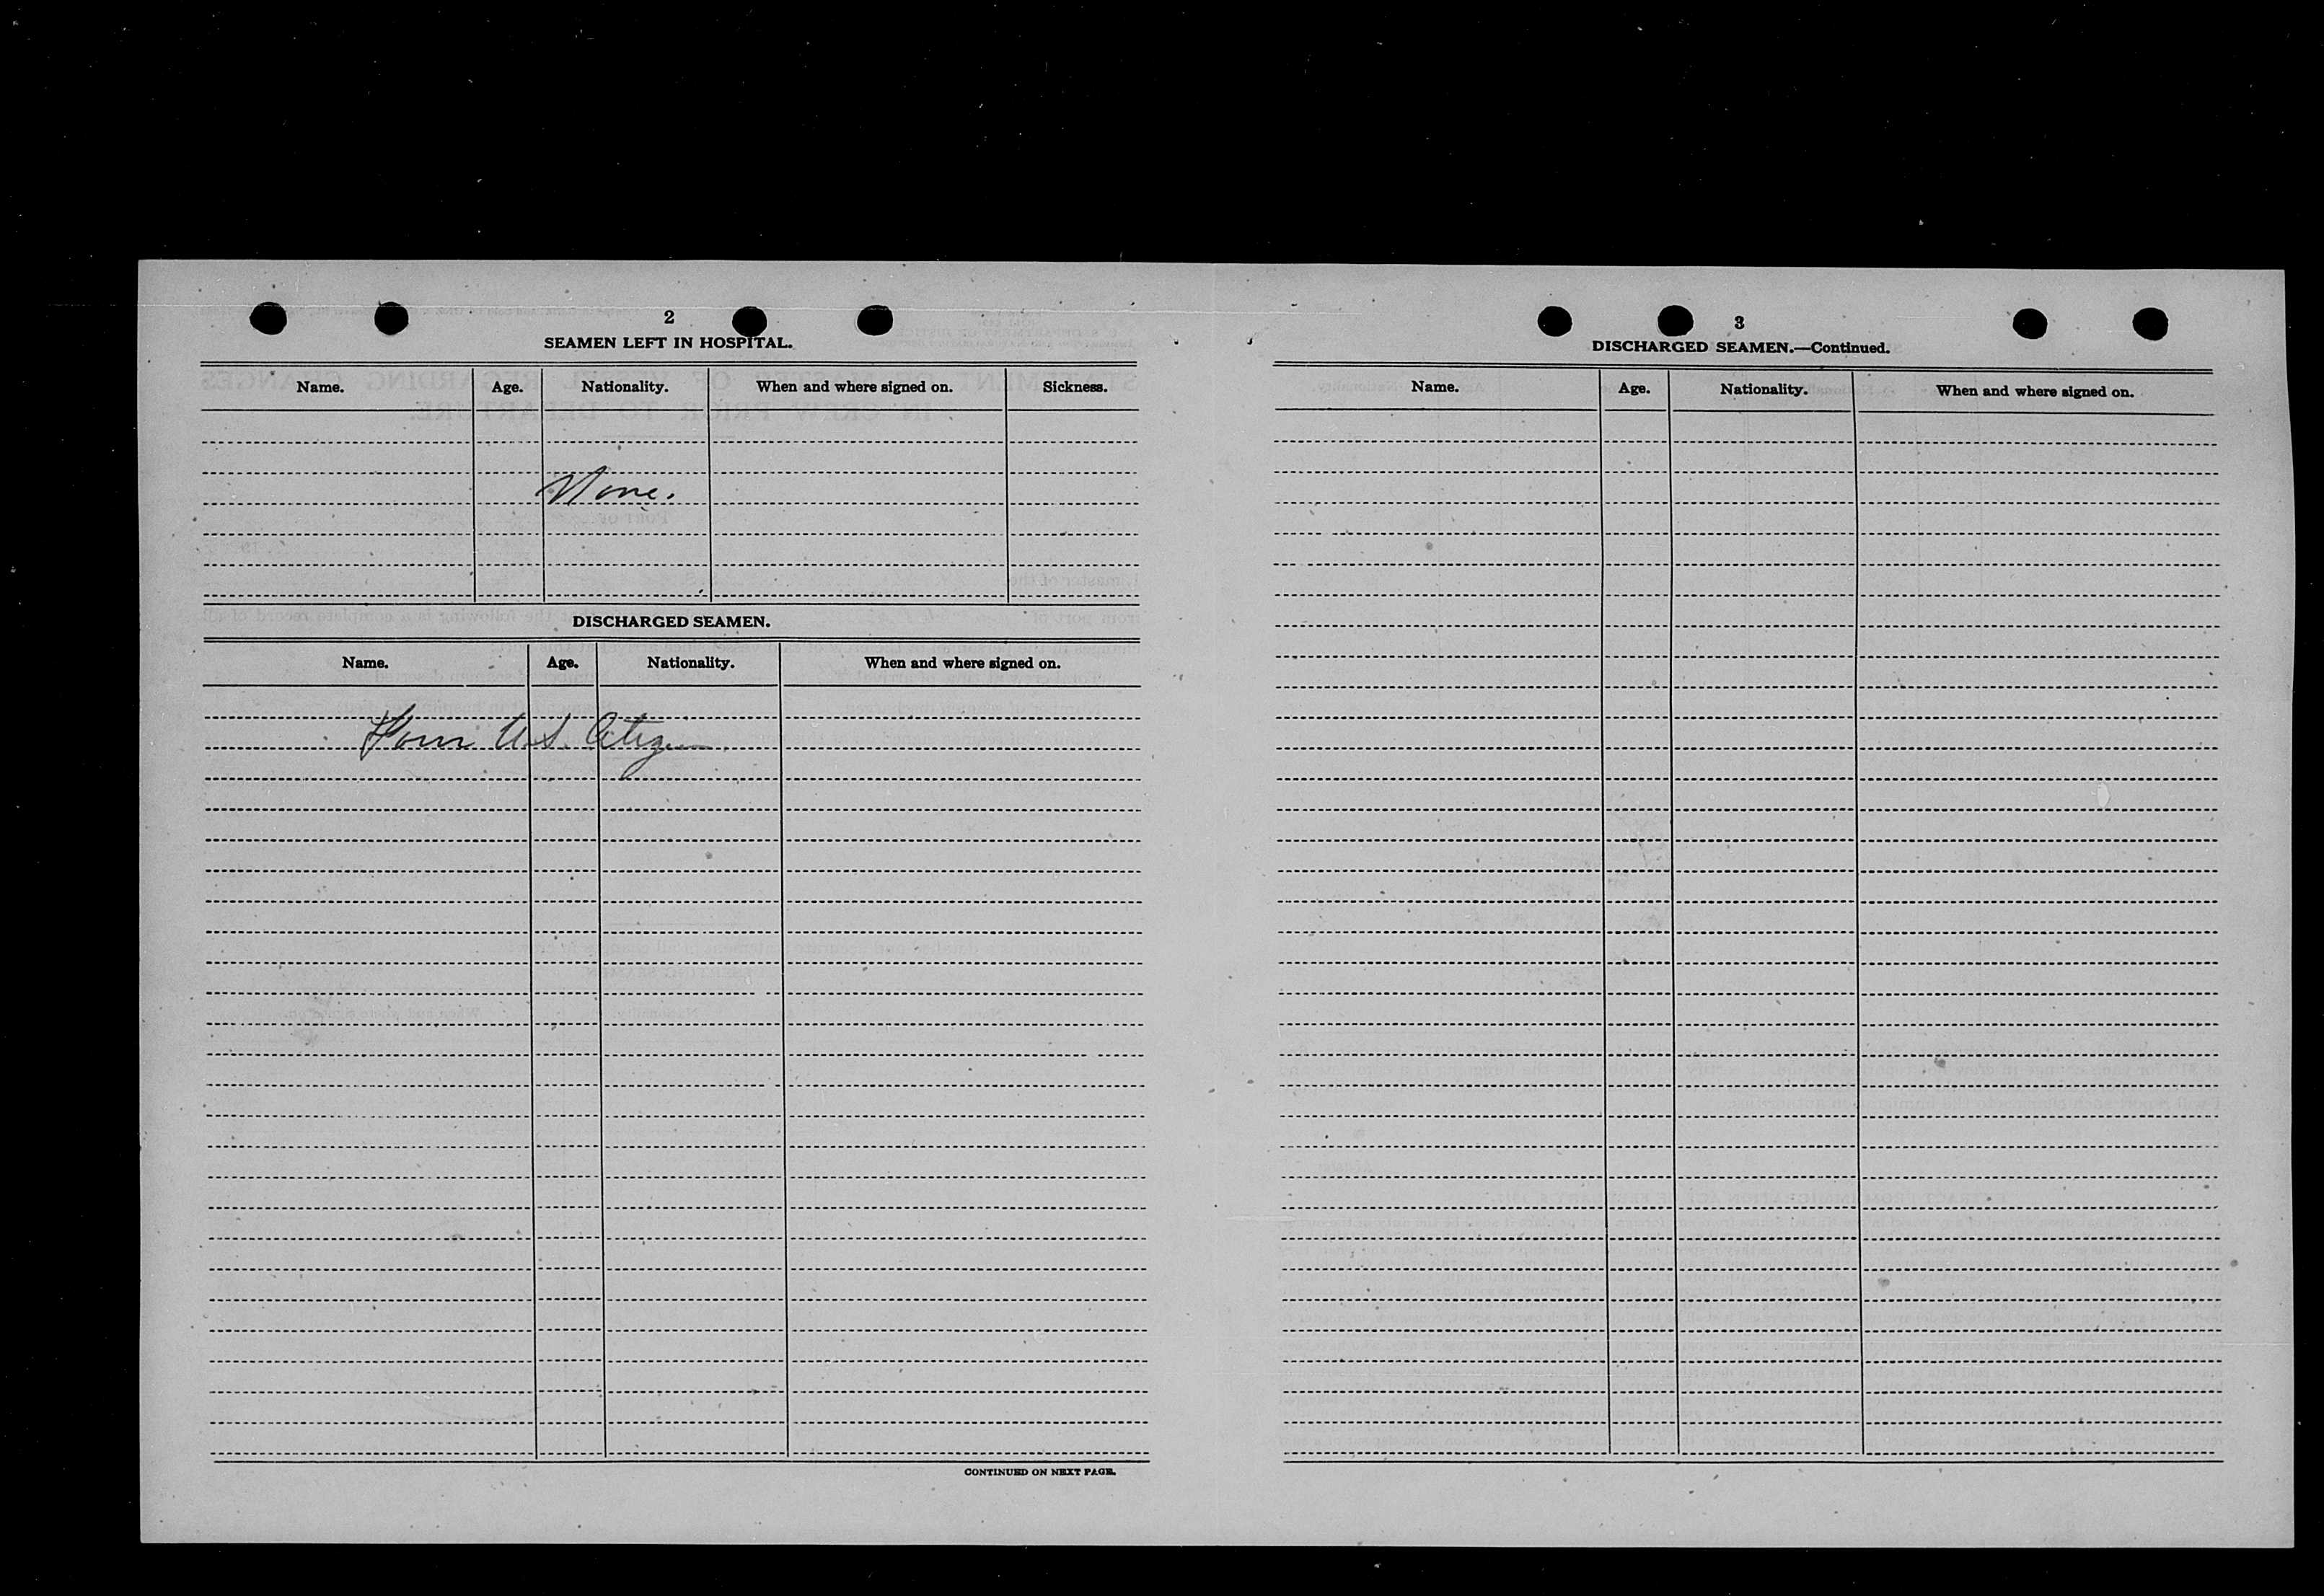 2
SEAMEN LEFT IN HOSPITAL.
Name. Age. Nationality. When and where signed on. Sickness.
None.
DISCHARGED SEAMEN.
Name. Age. Nationality. When and where signed on.
Four U.S. Citizen
CONTINUED ON NEXT PAGE.
3
DISCHARGED SEAMEN.—Continued.
Name. Age. Nationality. When and where signed on.